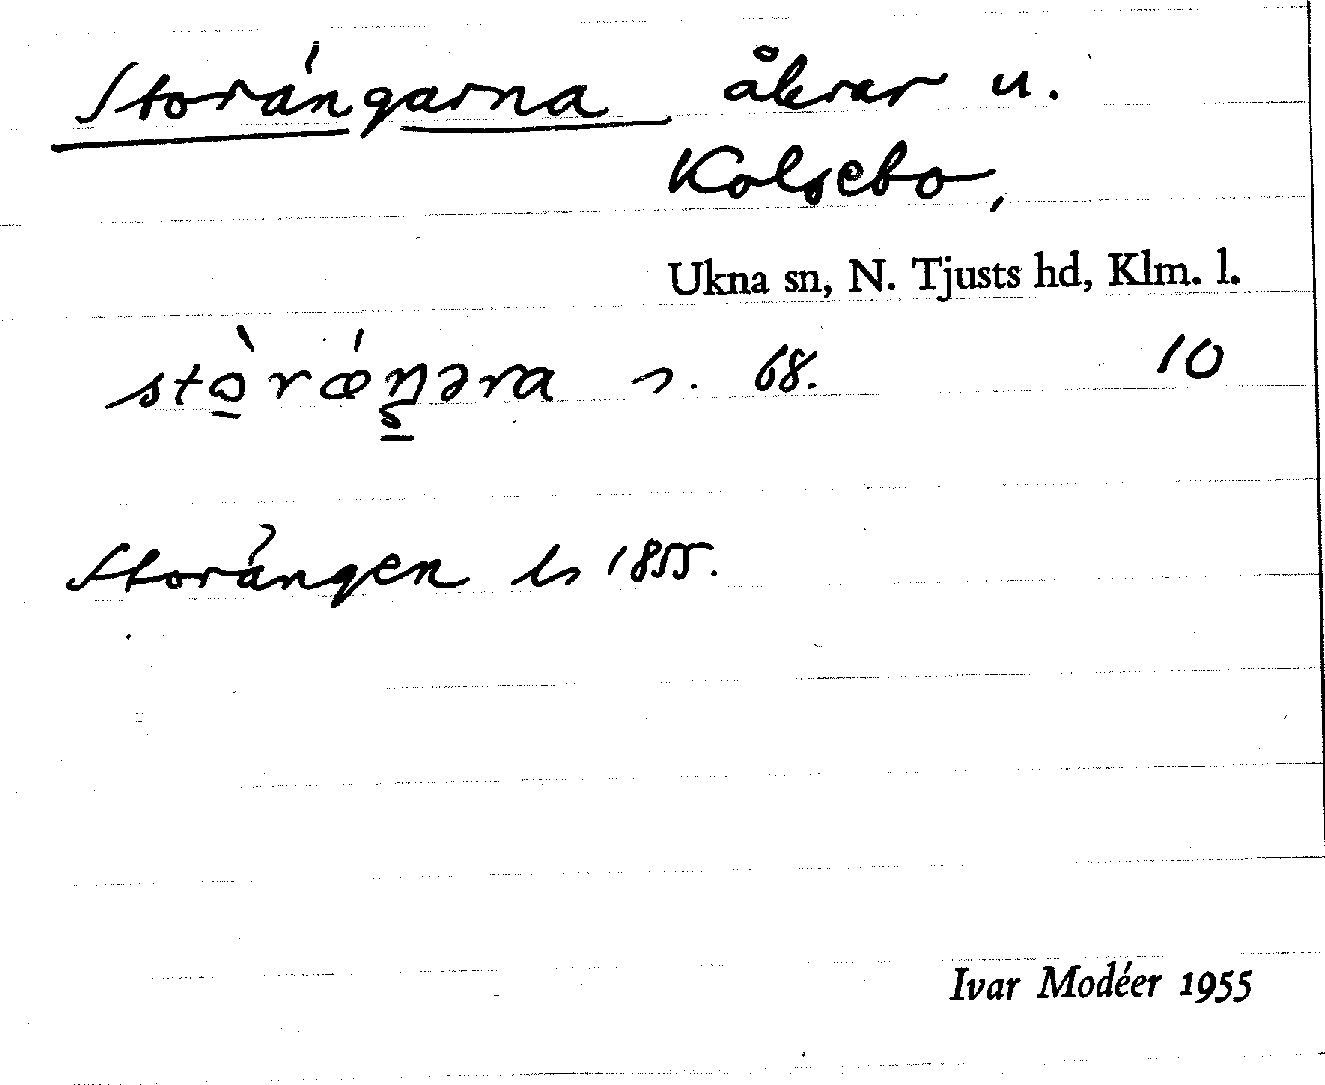 Storängarna åkrar u.
Kolsebo,
Ukna sn, N. Tjusts hd, Klm. l.
stò̠rǽŋəra n. 68. 10
Storängen ls 1855.
Ivar Modéer 1955